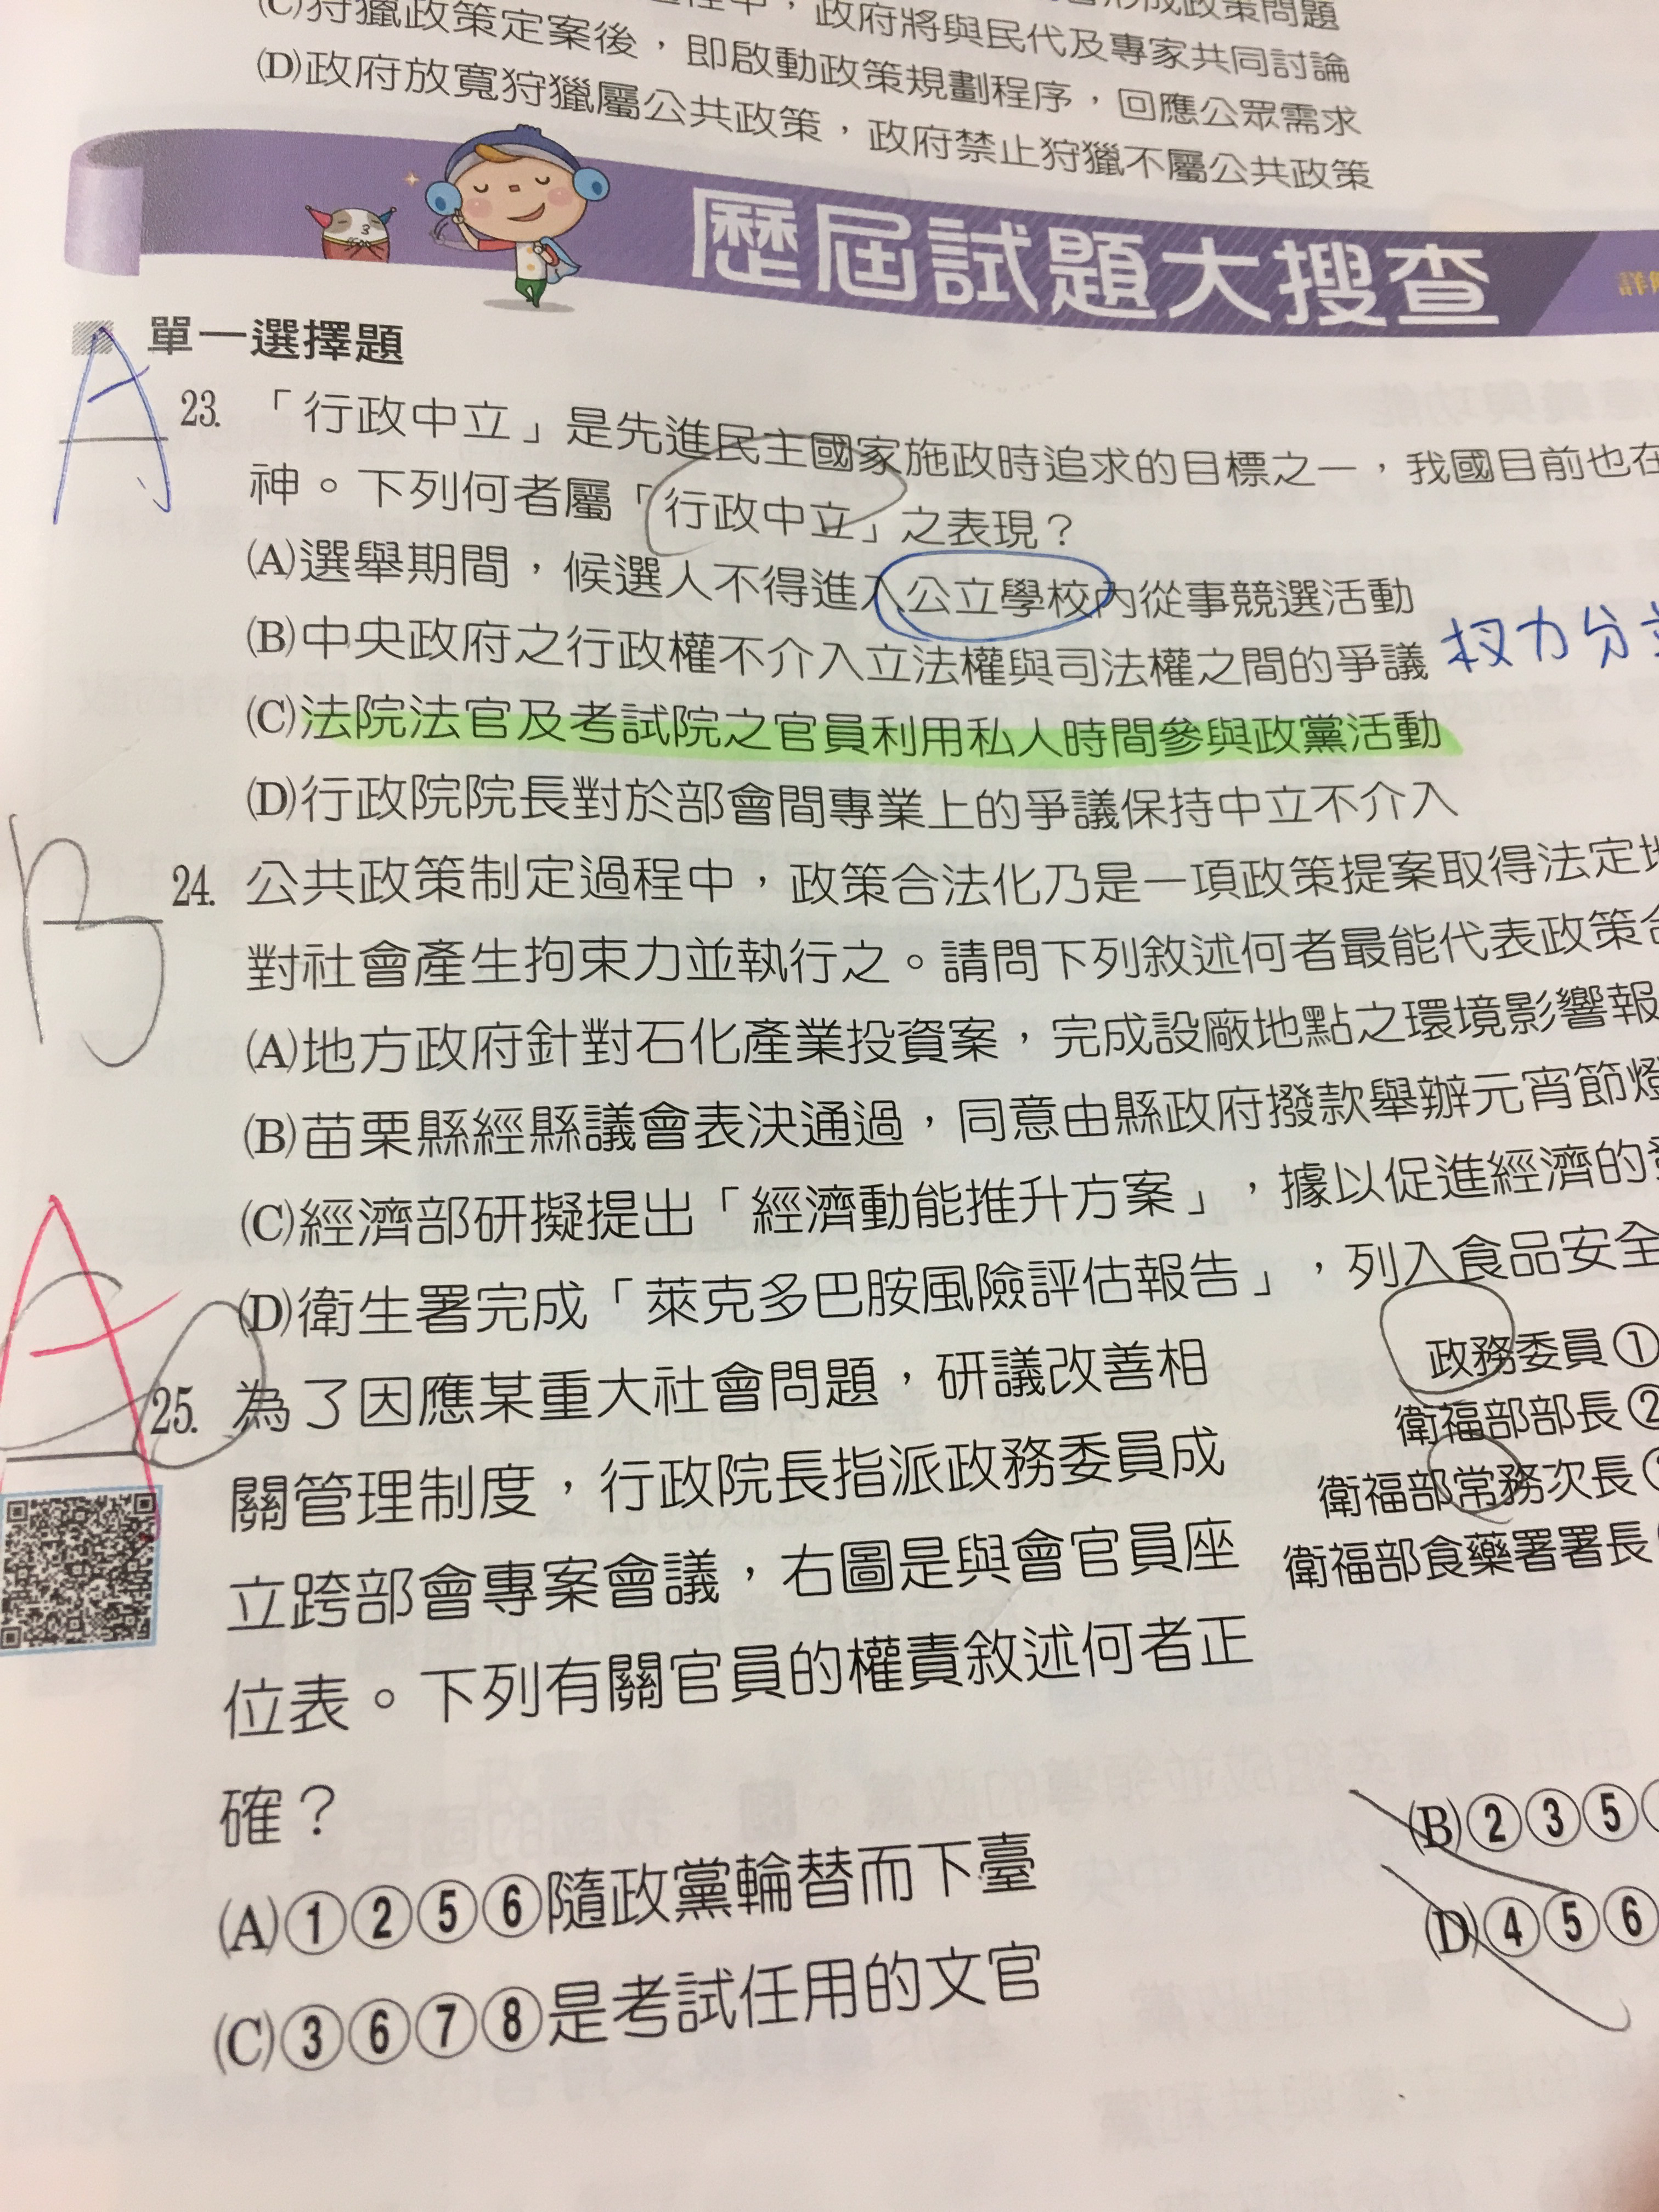 政府將與民代及專家共同討論
(C)狩獵政策定案後，即啟動政策規劃程序，回應公眾需求
(D)政府放寬狩獵屬公共政策，政府禁止狩獵不屬公共政策
歷屆試題大搜查
單一選擇題
A
23. 「行政中立」是先進民主國家施政時追求的目標之一，我國目前也在
神。下列何者屬「行政中立」之表現？
(A)選舉期間，候選人不得進入公立學校內從事競選活動
(B)中央政府之行政權不介入立法權與司法權之間的爭議 权力分
(C)法院法官及考試院之官員利用私人時間參與政黨活動
(D)行政院院長對於部會間專業上的爭議保持中立不介入
B
24. 公共政策制定過程中，政策合法化乃是一項政策提案取得法定地
對社會產生拘束力並執行之。請問下列敘述何者最能代表政策合
(A)地方政府針對石化產業投資案，完成設廠地點之環境影響報
(B)苗栗縣經縣議會表決通過，同意由縣政府撥款舉辦元宵節燈
(C)經濟部研擬提出「經濟動能推升方案」，據以促進經濟的發
(D)衛生署完成「萊克多巴胺風險評估報告」，列入食品安全
A
25. 為了因應某重大社會問題，研議改善相
關管理制度，行政院長指派政務委員成
立跨部會專案會議，右圖是與會官員座
位表。下列有關官員的權責敘述何者正
確？
政務委員①
衛福部部長②
衛福部常務次長
衛福部食藥署署長
(A)①②⑤⑥隨政黨輪替而下臺
(B)②③⑤
(C)③⑥⑦⑧是考試任用的文官
(D)④⑤⑥